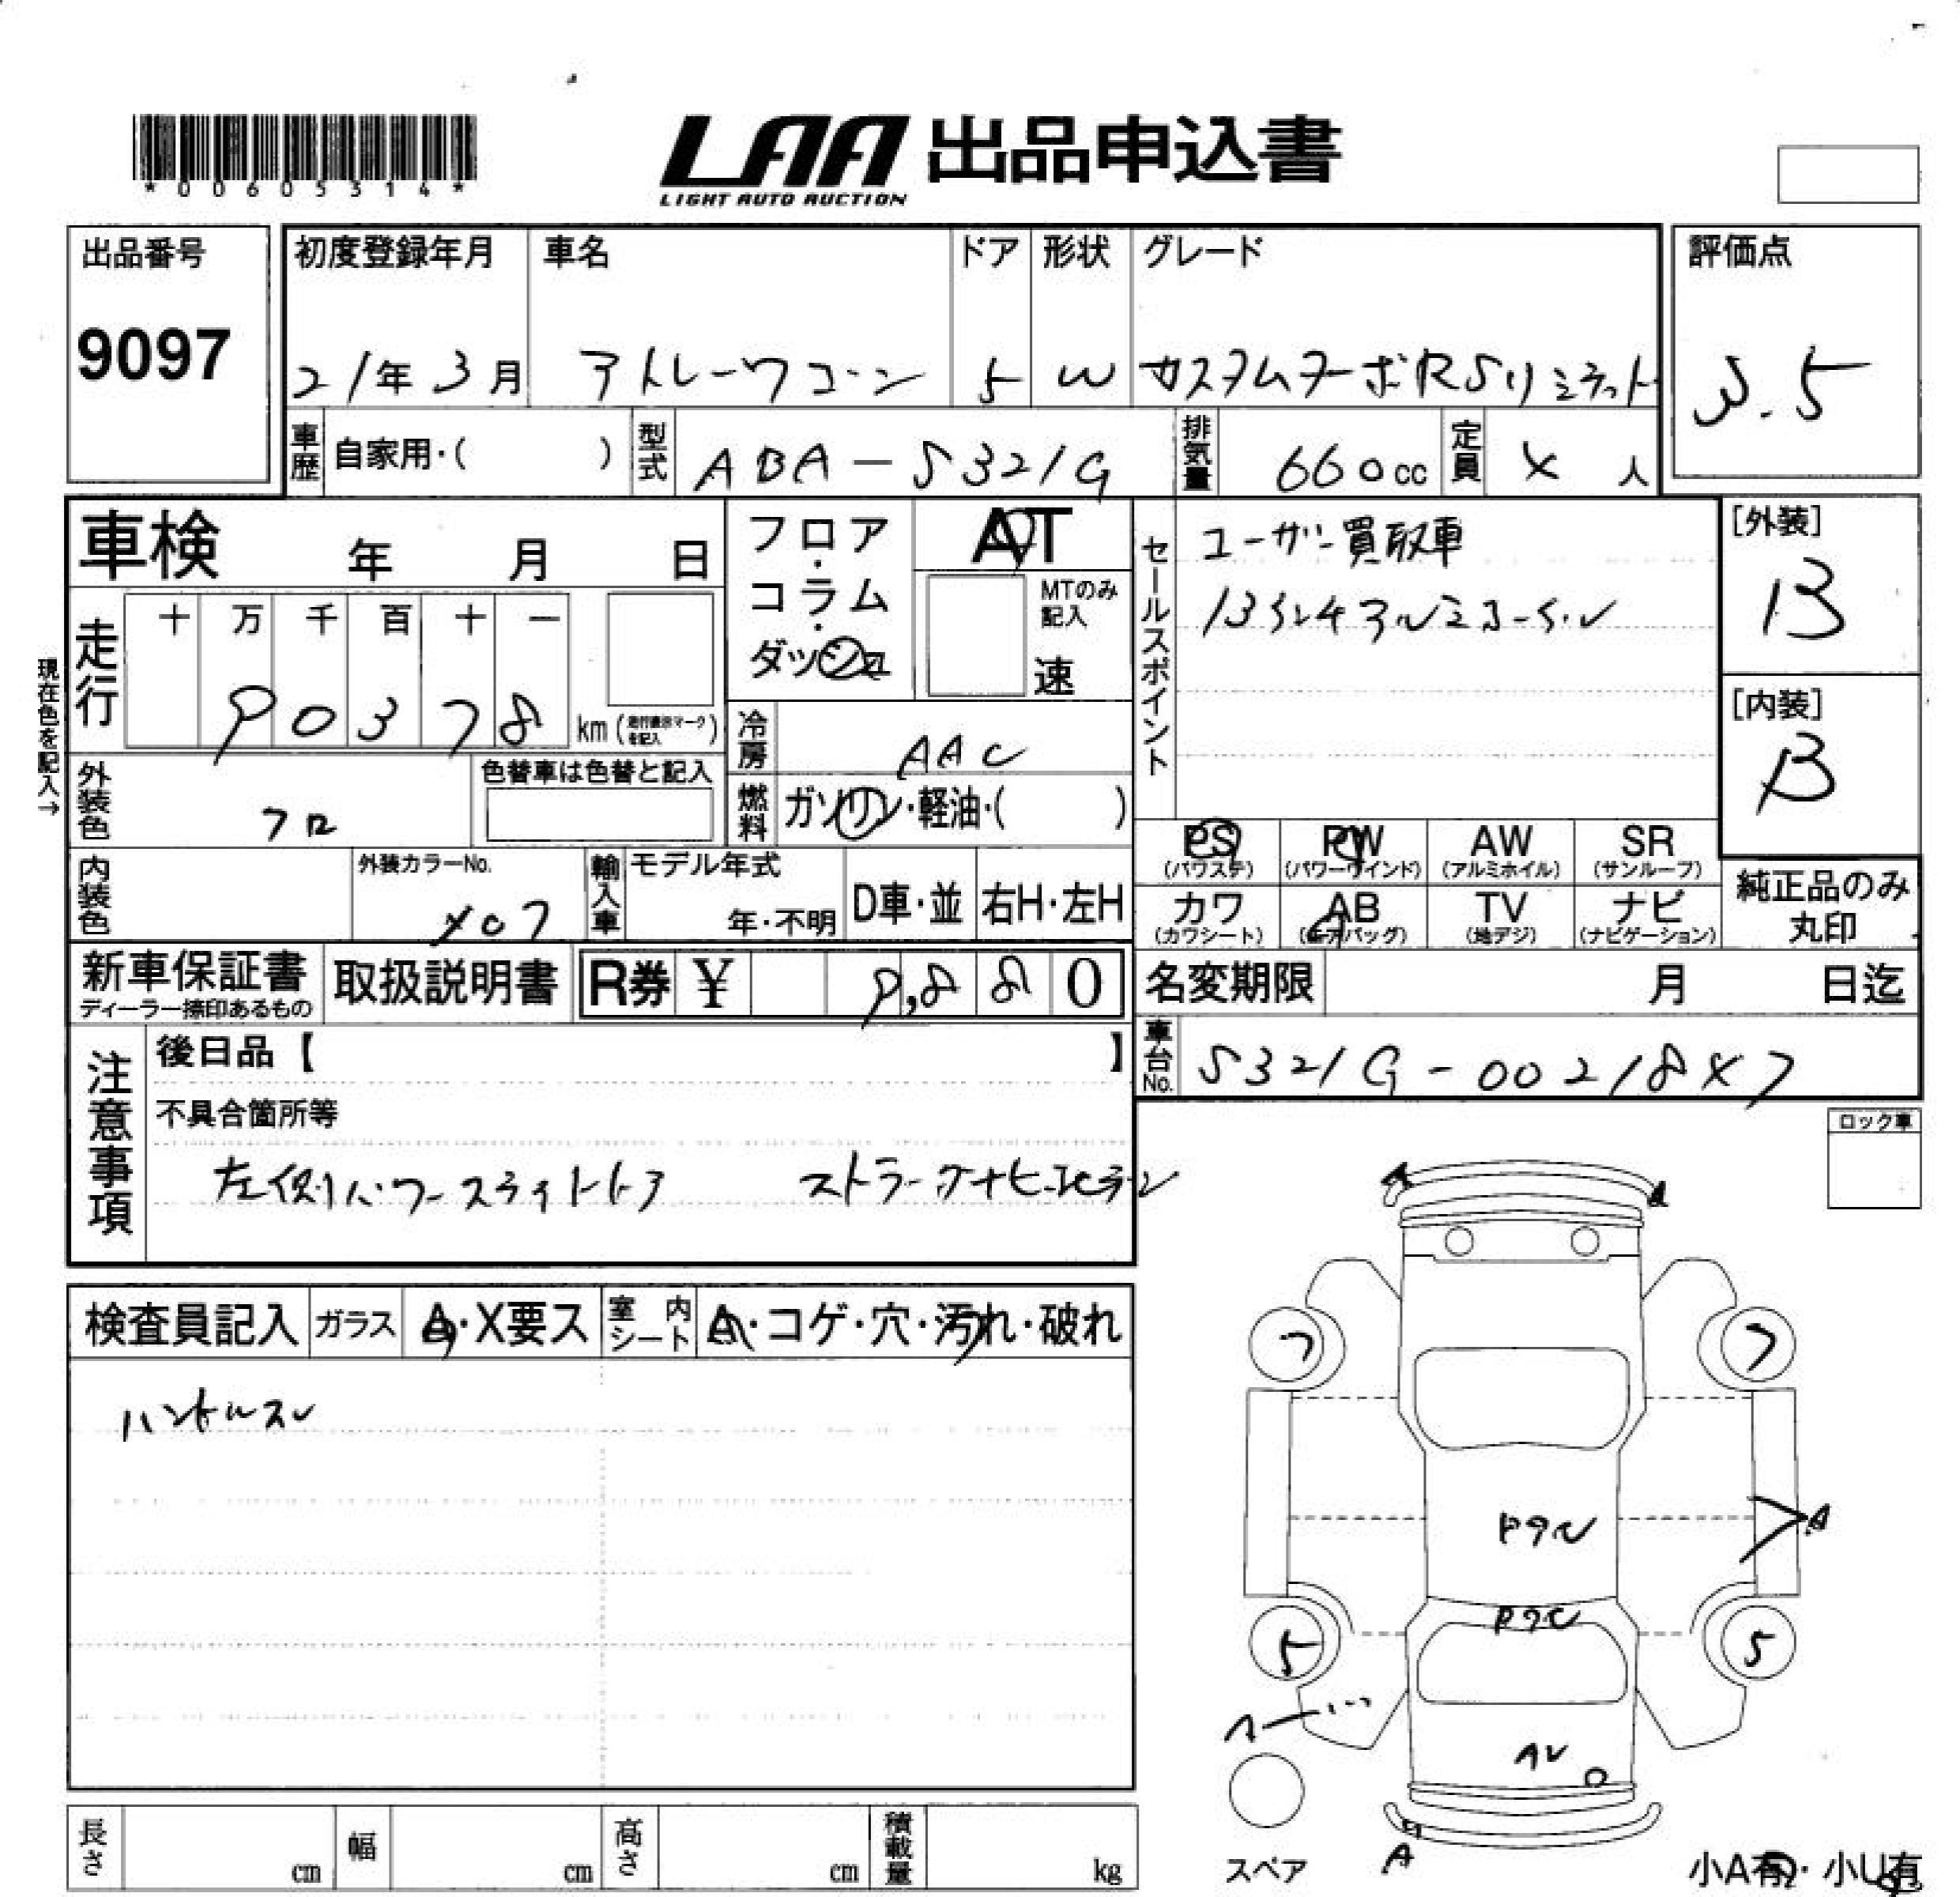 *00605314*
LAA 出品申込書
LIGHT AUTO AUCTION
出品番号
9097
初度登録年月
21年3月
車名
アトレーワゴン
ドア
5
形状
W
グレード
カスタムターボRSリミテット
評価点
3.5
車歴 自家用・( )
型式 ABA-S321G
排気量 660cc
定員 4人
車検 年 月 日
フロア・コラム・ダッシュ
AT
MTのみ記入
速
セールスポイント
ユーザー買取車
[外装]
B
[内装]
B
現在色を記入→
走行
十 万 千 百 十 一
90378
km(走行表示マークを記入)
冷房 AAC
外装色 クロ
色替車は色替と記入
燃料 ガソリン・軽油・( )
内装色
外装カラーNo.
X07
輸入車
モデル年式
年・不明
D車・並
右H・左H
PS
(パワステ)
PW
(パワーウインド)
AW
(アルミホイル)
SR
(サンルーフ)
カワ
(カワシート)
AB
(エアバッグ)
TV
(地デジ)
ナビ
(ナビゲーション)
純正品のみ丸印
新車保証書
ディーラー捺印あるもの
取扱説明書
R券 ¥ 9,880
名変期限 月 日迄
車台No. S321G-0021847
注意事項
後日品【 】
不具合箇所等
左側パワースライドドア
ロック車
検査員記入
ガラス A・X要ス
室内シート A・コゲ・穴・汚れ・破れ
ハンドルスレ
A
A
7
7
A
5
5
A
スペア
小A有・小U有
長さ cm
幅 cm
高さ cm
積載量 kg